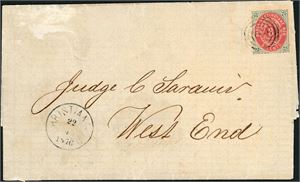 Judge C Sarauw
West End
22
1876